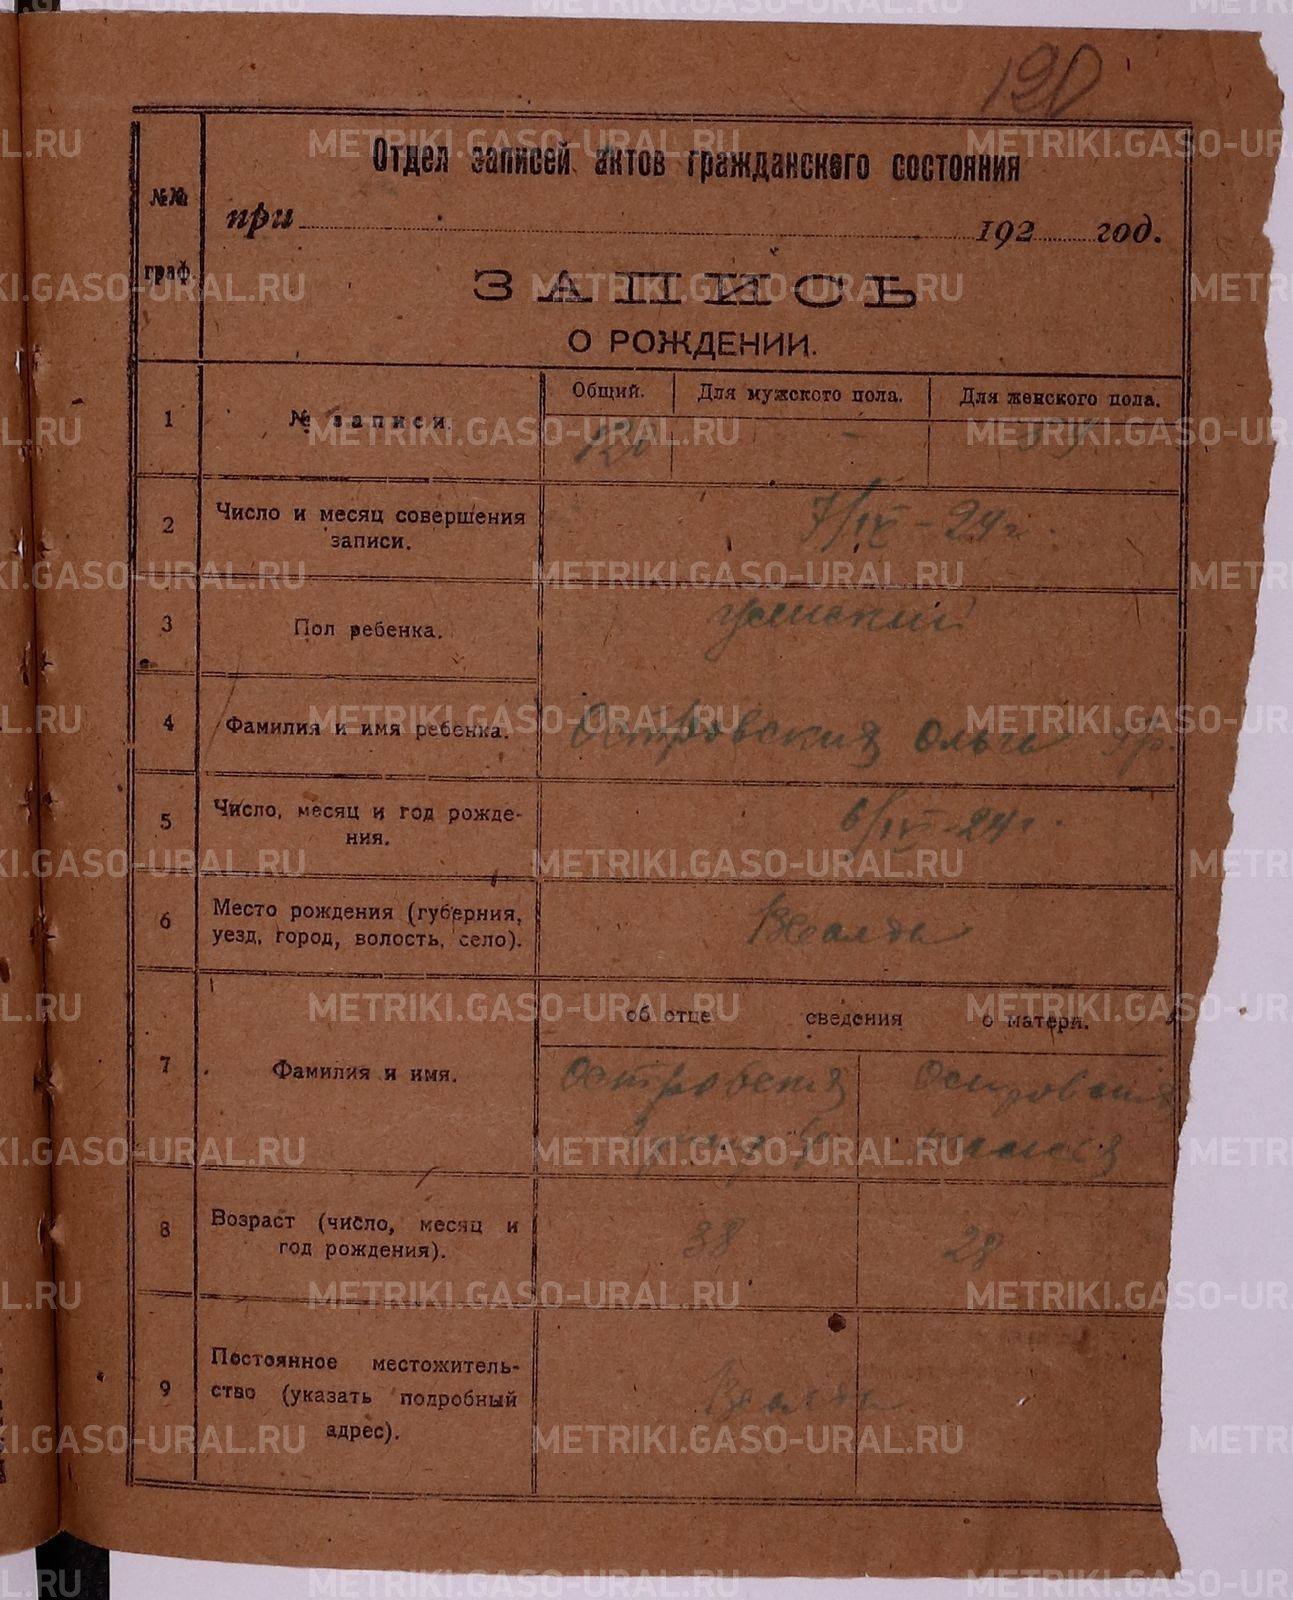 120
Отдел записей актов гражданского состояния
№№ граф.
при 192 год.
ЗАПИСЬ
О РОЖДЕНИИ.
1
№ записи.
Общий. Для мужского пола. Для женского пола.
120 -
2
Число и месяц совершения
записи.
7/IX - 24 г.
3
Пол ребенка.
женский
4
Фамилия и имя ребенка.
Островския Ольга
5
Число, месяц и год рожде-
ния.
6/IX - 24 г.
6
Место рождения (губерния,
уезд, город, волость, село).
7
Фамилия и имя.
об отце сведения о матери.
8
Возраст (число, месяц и
год рождения).
38 28
9
Постоянное местожитель-
ство (указать подробный
адрес).
METRIKI.GASO-URAL.RU